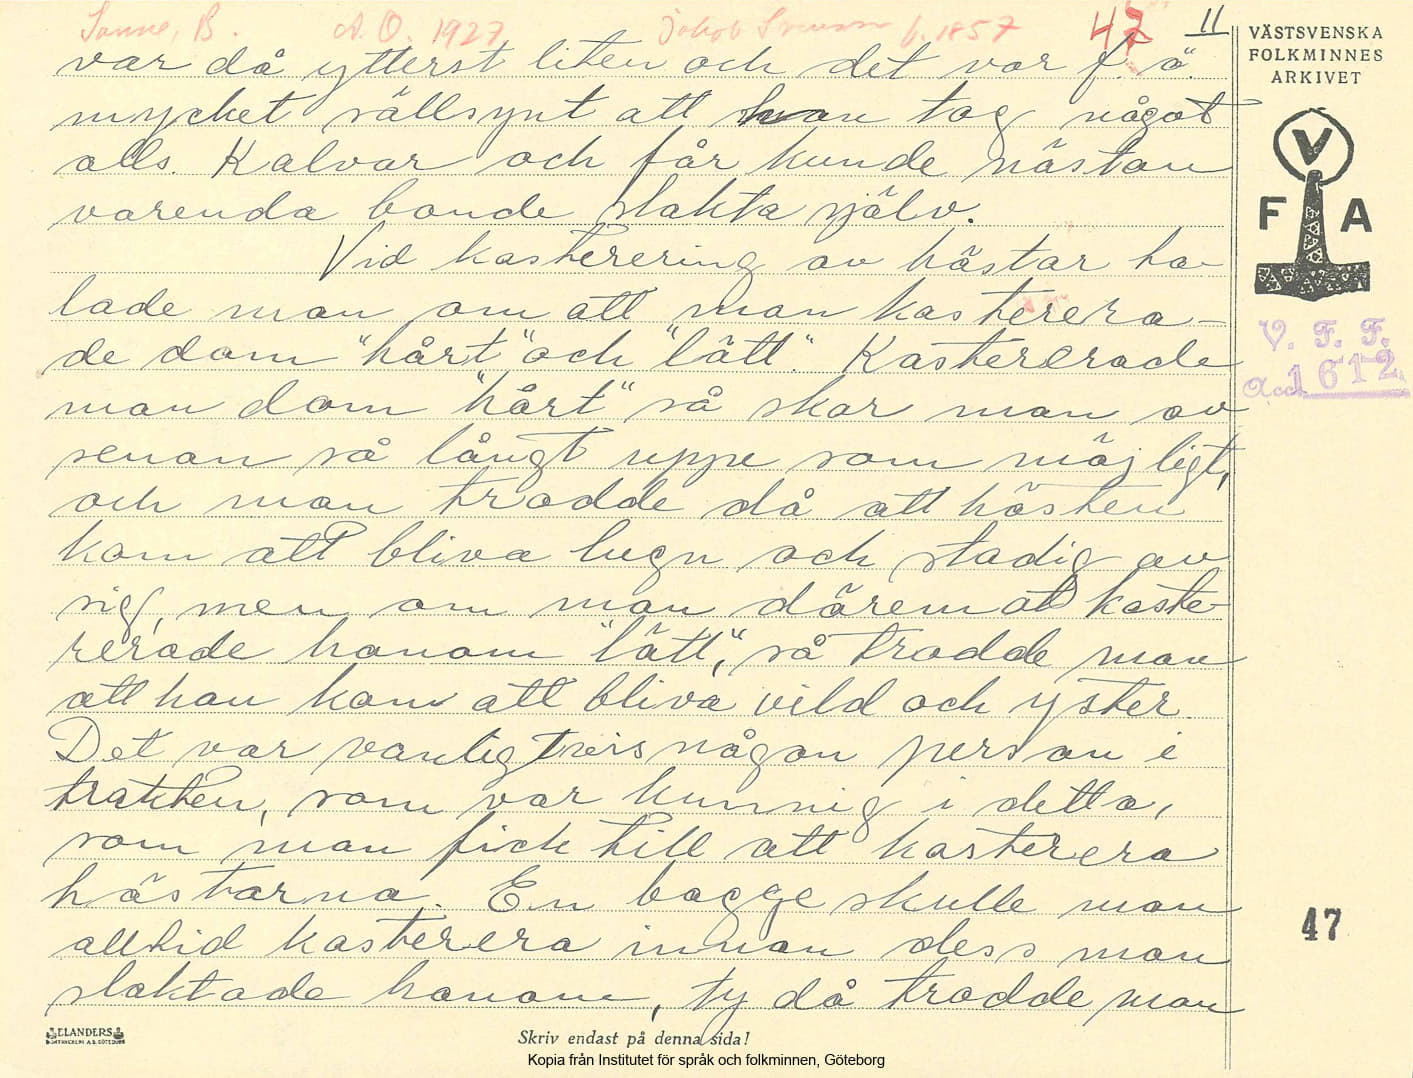 Sanne, B. A. O. 1927 Jakob Svensson f. 1857 47 11
var då ytterst liten och det var f. ö.
mycket sällsynt att han tog något
alls. Kalvar och får kunde nästan
varenda bonde slakta själv.
Vid kasterering av hästar ta-
lade man om att man kasterera-
de dom "hårt" och "lätt". Kastererade
man dom "hårt" så skar man av
senan så långt uppe som möjligt,
och man trodde då att hästen
kom att bliva lugn och stadig av
sig, men om man däremot kaste-
rerade honom "lätt", så trodde man
att han kom att bliva vild och yster.
Det var vanligtvis någon person i
trakten, som var kunnig i detta,
som man fick till att kasterera
hästarna. En bagge skulle man
alltid kasterera innan dess man
slaktade honom, ty då trodde man
VÄSTSVENSKA
FOLKMINNES
ARKIVET
V
F A
V. F. F.
Acc. 1612
47
ELANDERS
Skriv endast på denna sida!
Kopia från Institutet för språk och folkminnen, Göteborg